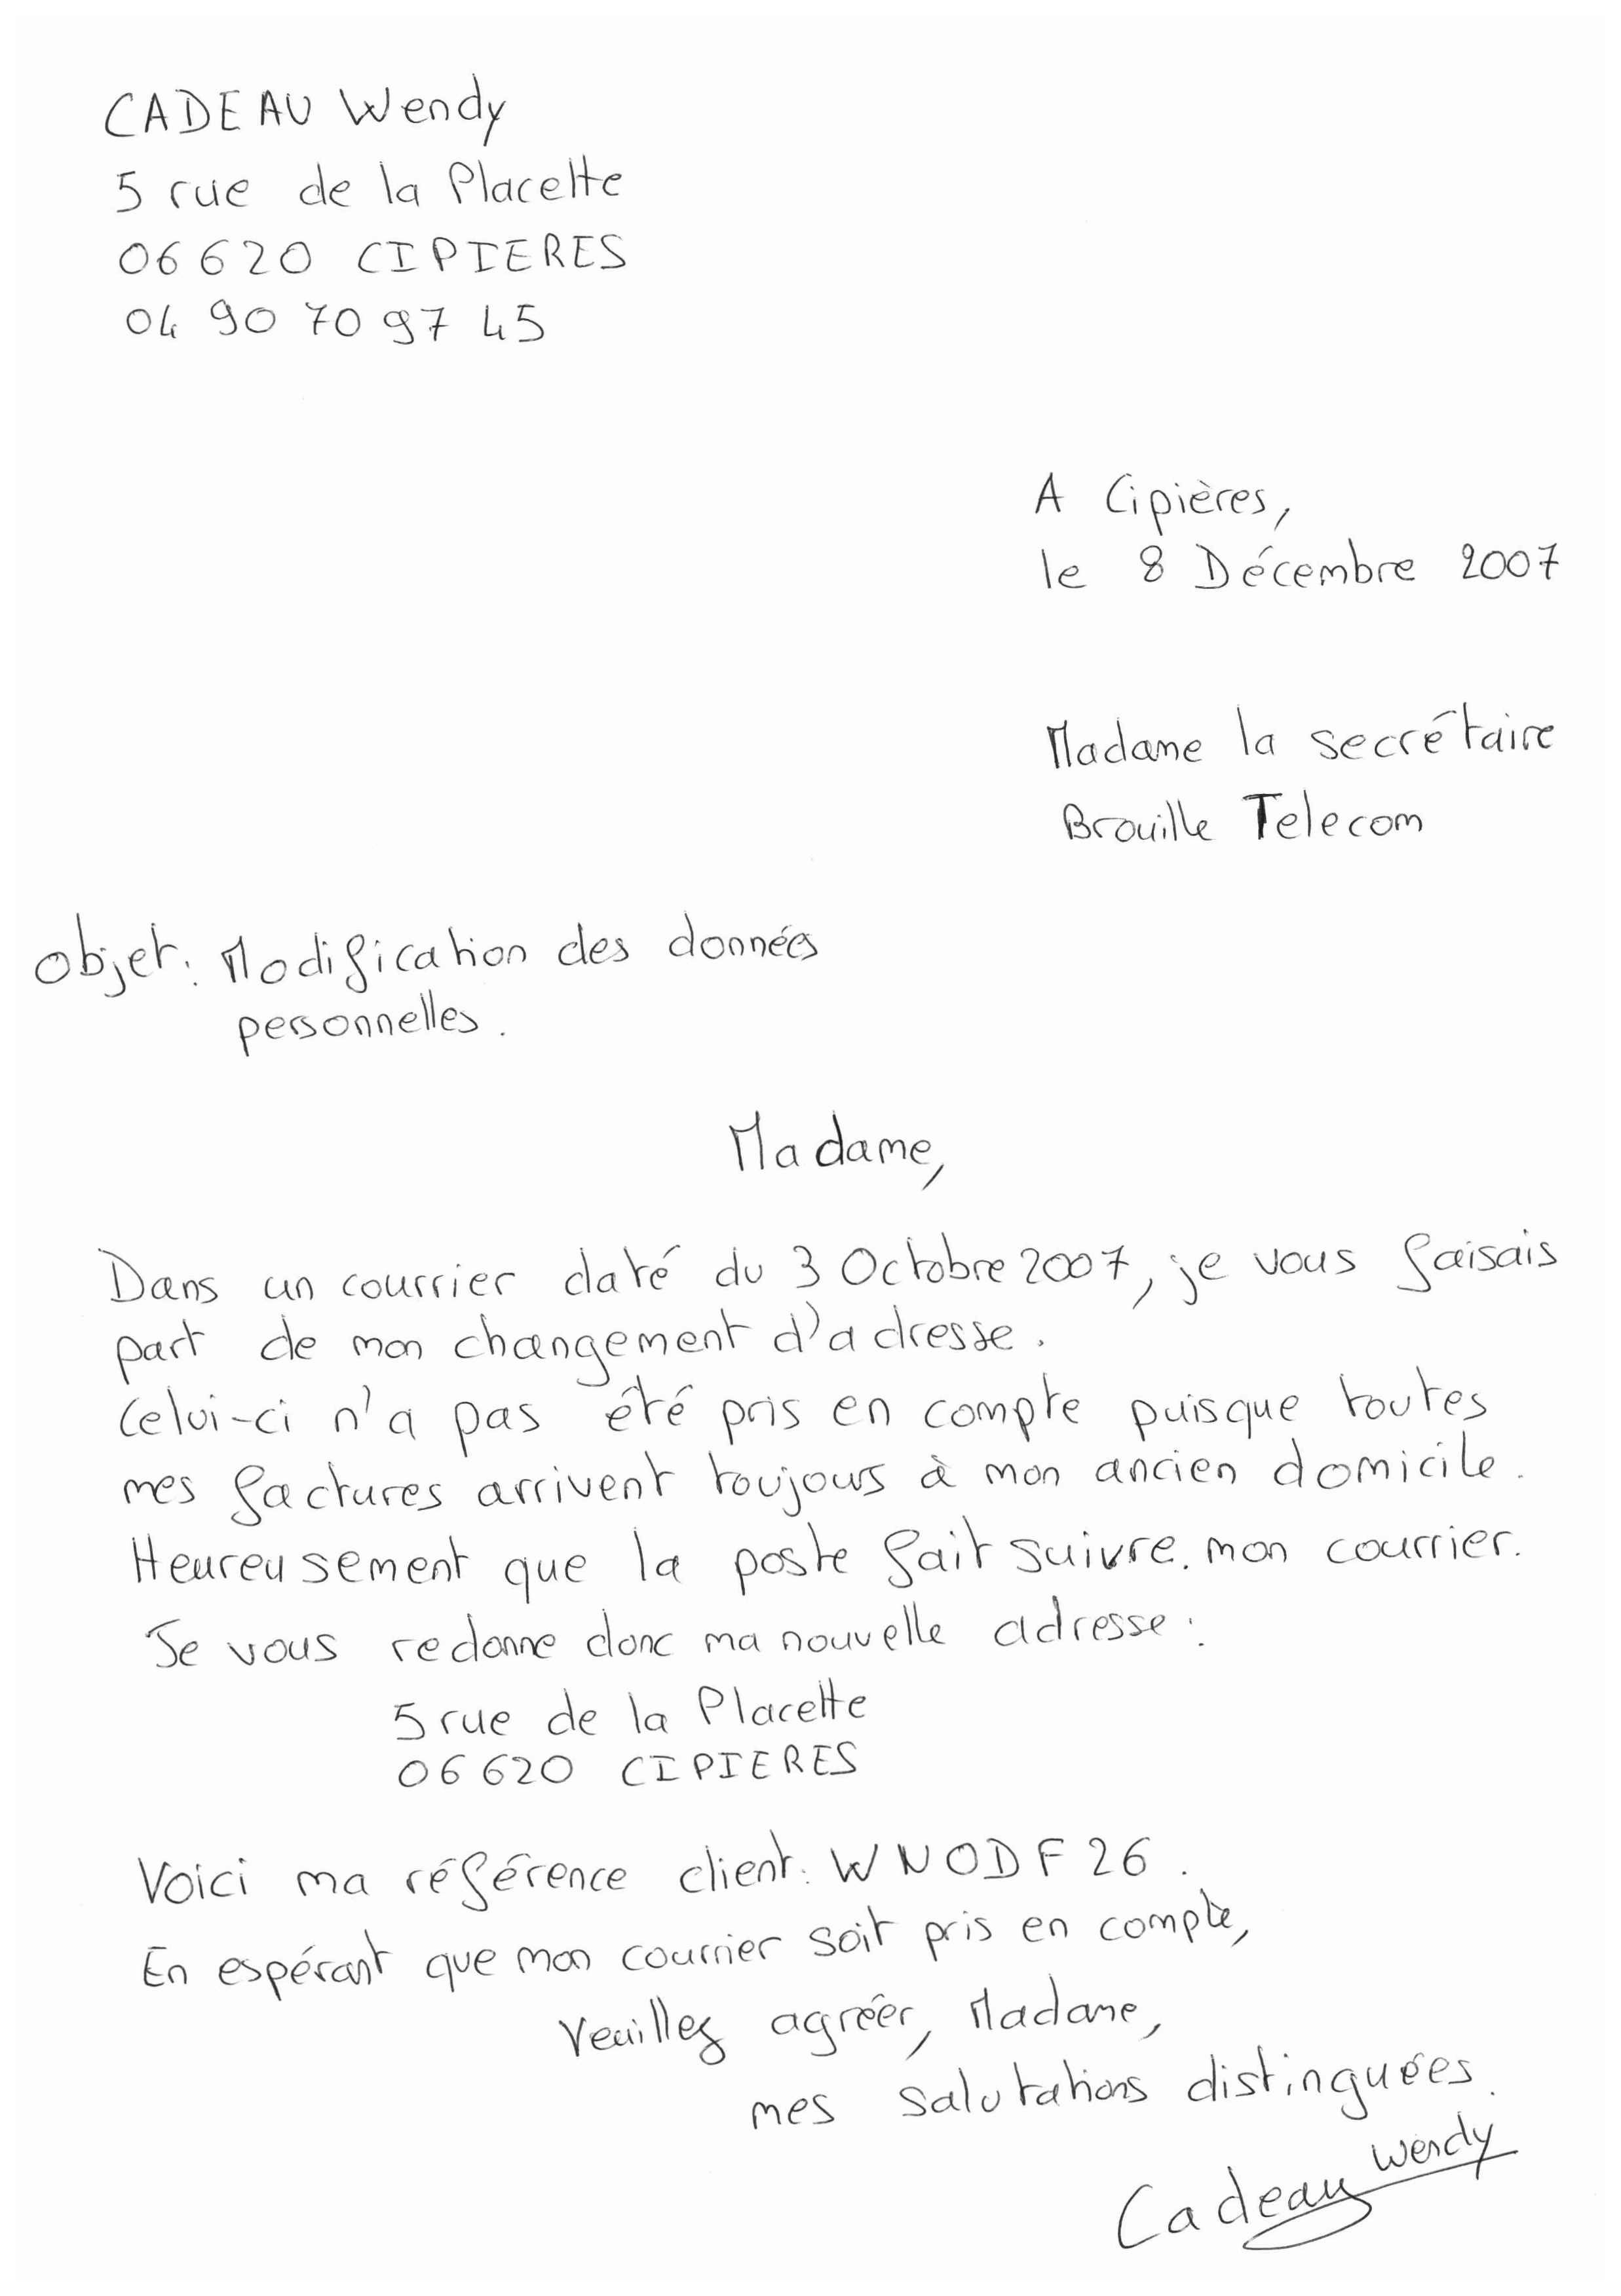 CADEAU Wendy
5 rue de la Placette
06620 CIPIERES
04 90 70 97 45
A Cipières,
le 8 Décembre 2007
Madame la secrétaire
Brouille Telecom
Objet: Modification des données
personnelles.
Madame,
Dans un courrier daté du 3 Octobre 2007, je vous faisais
part de mon changement d'adresse.
Celui-ci n'a pas été pris en compte puisque toutes
mes factures arrivent toujours à mon ancien domicile.
Heureusement que la poste fait suivre. mon courrier.
Je vous redonne donc ma nouvelle adresse:
5 rue de la Placette
06620 CIPIERES
Voici ma référence client: WNODF26.
En espérant que mon courrier soit pris en compte,
Veuillez agréer, Madame,
mes salutations distinguées.
Cadeau Wendy